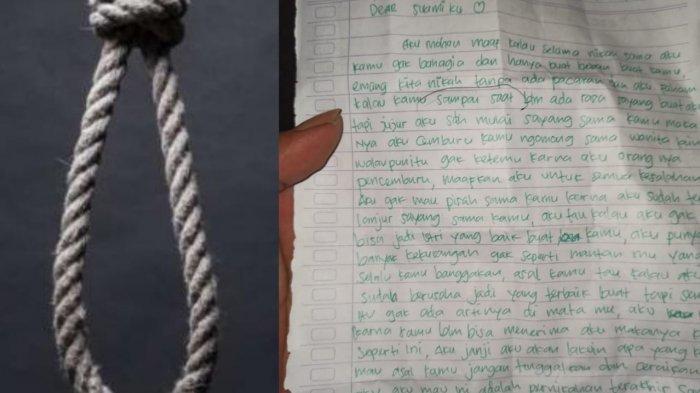 Dear Suami ku ♡
Aku mohon maaf kalau selama nikah sama aku
kamu gak bahagia dan hanya buat beban buat kamu,
emang kita nikah tanpa ada pacaran dan aku paham
kalau kamu sampai saat ada rasa sayang buat a
tapi jujur aku sdh mulai sayang sama kamu maka
nya aku cemburu kamu ngomong sama wanita
walaupun itu gak ketemu karna aku orang nya
pencemburu, maafkan aku untuk semua kesalahan
Aku gak mau pisah sama kamu karna aku sudah ter
lanjur sayang sama kamu, aku tau kalau aku gak
bisa jadi istri yang baik buat kamu, aku punya
banyak kekurangan gak seperti mantan mu yang
selalu kamu banggakan, asal kamu tau kalau aku
sudah berusaha jadi yang terbaik buat tapi
itu gak ada artinya di mata mu, aku
karna kamu blm bisa menerima aku makanya k
seperti ini, Aku janji aku akan lakuin apa yang
mau asal kamu jangan tinggalkan dan ceraikan
aku mau ini adalah pernikahan terakhir